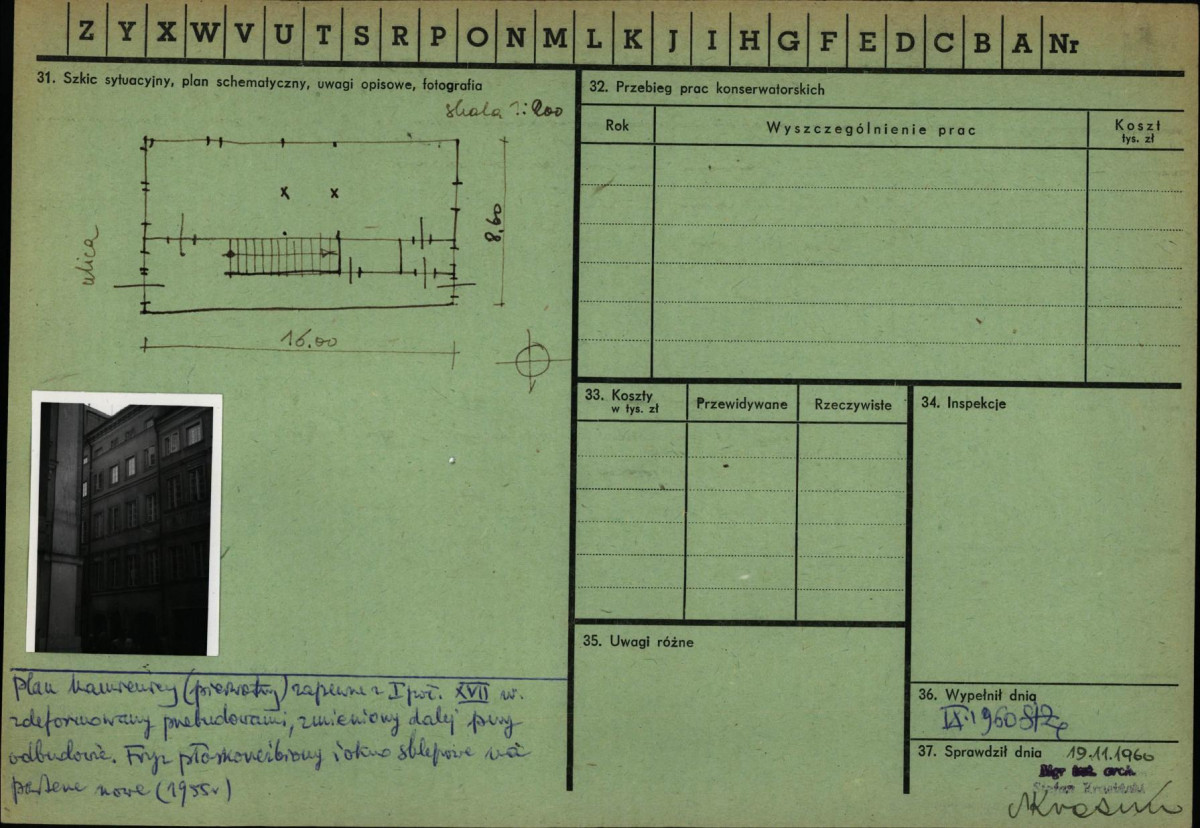 Z Y X W V U T S R P O N M L K J I H G F E D C B A Nr
31. Szkic sytuacyjny, plan schematyczny, uwagi opisowe, fotografia
skala 1:200
ulica
8,60
16.00
Plan kamienicy (pierwotny) zapewne z I poł. XVII w.
zdeformowany przebudowami, zmieniony dalej przy
odbudowie. Fryz płaskorzeźbiony i okno sklepowe na
parterze nowe (1955r)
32. Przebieg prac konserwatorskich
Rok
Wyszczególnienie prac
Koszt
tys. zł
33. Koszty
w tys. zł
Przewidywane
Rzeczywiste
34. Inspekcje
35. Uwagi różne
36. Wypełnił dnia
IX.1960
37. Sprawdził dnia 19.11.1960
Mgr inż. arch.